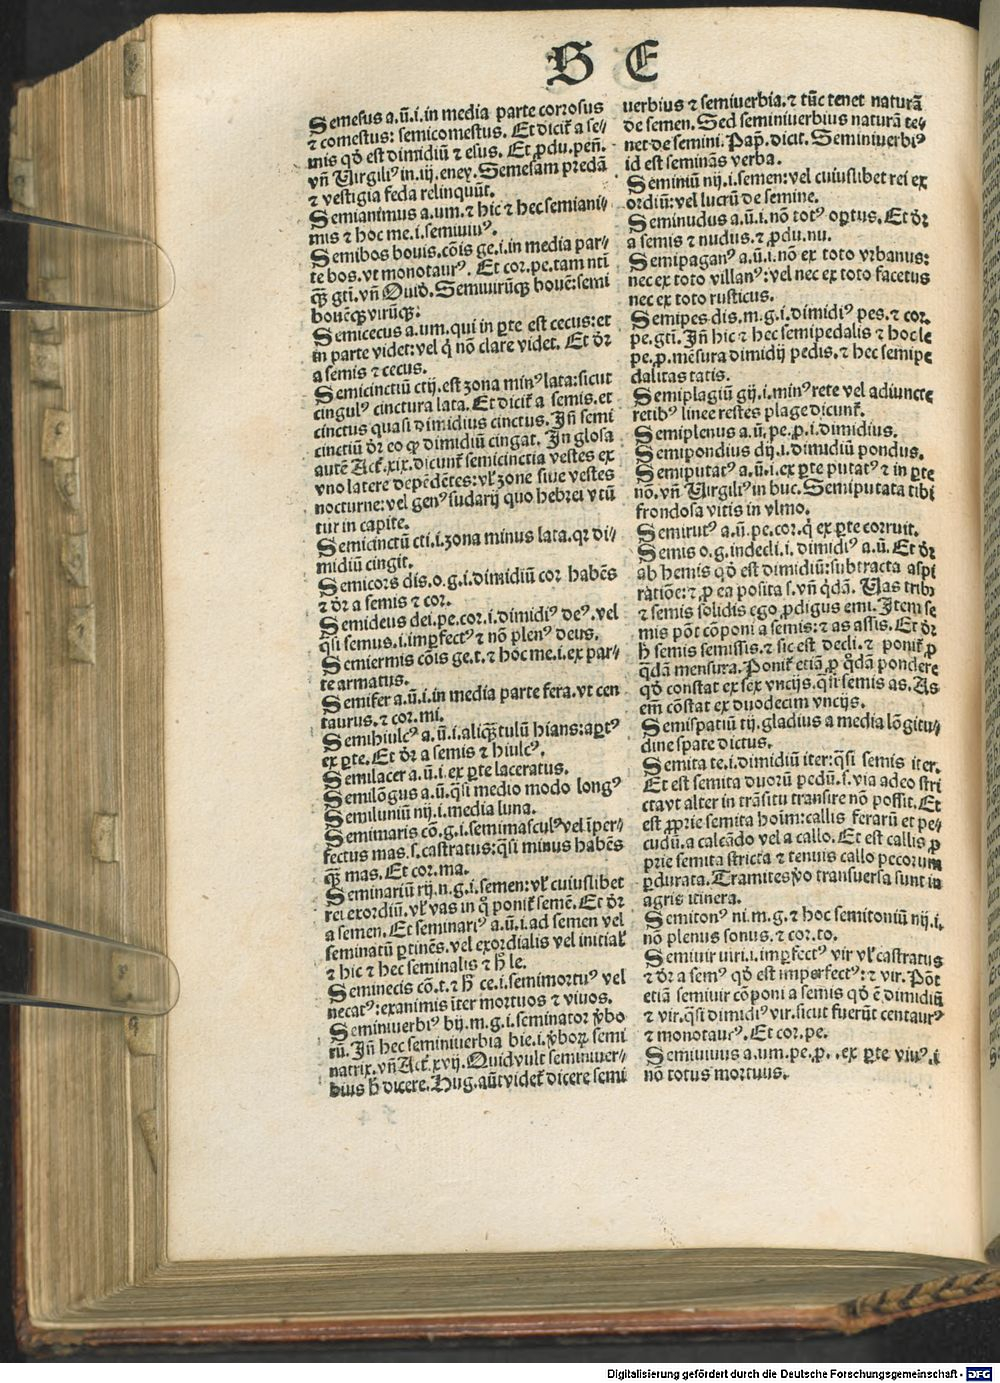 S E
Semesus a.ū.i.in media parte corrosus
⁊ comestus: semicomestus. Et dicit̄ a se⸗
mis qd̓ est dimidiū ⁊ esus. Et ꝓdu.pen̄.
vn̄ Uirgiliꝰ in.iij.eney. Semesam predā
⁊ vestigia feda relinquūt.
Semianimus a.um.⁊ hic ⁊ hec semiani⸗
mis ⁊ hoc me.i.semiuiuꝰ.
Semibos bouis.cōis ge.i.in media par⸗
te bos.vt monotaurꝰ. Et cor.pe.tam ntī
qȝ̄ gtī.vn̄ Ouid̓. Semiuirūqȝ bouē:semi
bouēqȝ virūqȝ.
Semicecus a.um.qui in ꝑte est cecus:et
in parte videt:vel q̓ nō clare videt. Et d̓r
a semis ⁊ cecus.
Semicinctiū ctij.est zona minꝰ lata:sicut
cingulꝰ cinctura lata. Et dicit̄ a semis.et
cinctus quasi dimidius cinctus. Jn̄ semi
cinctiū d̓r eo ꝙ dimidiū cingat. Jn glosa
autē Act̄.xix.dicunt̄ semicinctia vestes ex
vno latere depēdētes:vl̓ zone siue vestes
nocturne:vel genꝰ sudarij quo hebrei vtū
tur in capite.
Semicinctū cti.i.zona minus lata.qꝛ di⸗
midiū cingit.
Semicors dis.o.g.i.dimidiū cor habēs
⁊ d̓r a semis ⁊ cor.
Semideus dei.pe.cor.i.dimidiꝰ deꝰ.vel
q̄si semus.i.imꝑfectꝰ ⁊ nō plenꝰ deus.
Semiermis cōis ge.t.⁊ hoc me.i.ex par⸗
te armatus.
Semifer a.ū.i.in media parte fera.vt cen
taurus.⁊ cor.mi.
Semihiulcꝰ a.ū.i.aliqȝ̄tulū hians:aꝑtꝰ
ex ꝑte. Et d̓r a semis ⁊ hiulcꝰ.
Semilacer a.ū.i.ex ꝑte laceratus.
Semilōgus a.ū.q̄si medio modo longꝰ
Semiluniū nij.i.media luna.
Semimaris cō.g.i.semimasculꝰ vel īper⸗
fectus mas.s.castratus:q̄si minus habēs
qȝ̄ mas. Et cor.ma.
Seminariū rij.n.g.i.semen:vl̓ cuiuslibet
rei exordiū.vl̓ vas in q̊ ponit̄ semē. Et d̓r
a semen. Et seminariꝰ a.ū.i.ad semen vel
seminatū ꝑtinēs.vel exordialis vel initial̓
⁊ hic ⁊ hec seminalis ⁊ h̄ le.
Seminecis cō.t.⁊ h̄ ce.i.semimortuꝰ vel
necatꝰ:exanimis īter mortuos ⁊ viuos.
Seminiuerbiꝰ bij.m.g.i.seminator v̓bo
rū. Jn̄ hec seminiuerbia bie.i.v̓boꝝ semi
natrix.vn̄ Act̄.xvij. Quid vult seminiuer⸗
bius h̄ dicere. Hug.aūt videt̄ dicere semi
uerbius ⁊ semiuerbia.⁊ tūc tenet naturā
de semen. Sed seminiuerbius naturā te⸗
net de semini. Pap̄.dicit. Seminiuerbiꝰ
id est seminās verba.
Seminiū nij.i.semen:vel cuiuslibet rei ex
ordiū:vel lucrū de semine.
Seminudus a.ū.i.nō totꝰ oꝑtus. Et d̓r
a semis ⁊ nudus.⁊ ꝓdu.nu.
Semipaganꝰ a.ū.i.nō ex toto vrbanus:
nec ex toto villanꝰ:vel nec ex toto facetus
nec ex toto rusticus.
Semipes dis.m.g.i.dimidiꝰ pes.⁊ cor.
pe.gtī. Jn̄ hic ⁊ hec semipedalis ⁊ hoc le
pe.ꝓ.mēsura dimidij pedis.⁊ hec semipe
dalitas tatis.
Semiplagiū gij.i.minꝰ rete vel adiuncte
retibꝰ linee restes plage dicunt̄.
Semiplenus a.ū.pe.ꝓ.i.dimidius.
Semipondius dij.i.dimidiū pondus.
Semiputatꝰ a.ū.i.ex ꝑte putatꝰ ⁊ in ꝑte
nō.vn̄ Uirgiliꝰ in buc. Semiputata tibi
frondosa vitis in vlmo.
Semirutꝰ a.ū.pe.cor.q̓ ex ꝑte corruit.
Semis o.g.indecli.i.dimidiꝰ a.ū. Et d̓r
ab hemis qd̓ est dimidiū:subtracta aspi
ratiōe:⁊ ꝓ ea posita s.vn̄ q̓dā. Uas tribꝰ
⁊ semis solidis ego ꝓdigus emi. Jtem se
mis pōt cōponi a semis:⁊ as assis. Et d̓r
h̄ semis semissis.⁊ sic est decli.⁊ ponit̄ ꝓ
q̄dā mensura. Ponit̄ etiā ꝓ q̊dā pondere
qd̓ constat ex sex vncijs.q̄si semis as. As
em̄ cōstat ex duodecim vncijs.
Semispatiū tij.gladius a media lōgitu⸗
dine spate dictus.
Semita te.i.dimidiū iter:q̄si semis iter.
Et est semita duorū pedū.s.via adeo stri
cta vt alter in trāsitu transire nō possit. Et
est ꝓprie semita hoīm:callis ferarū et pe⸗
cudū.a calcādo vel a callo. Et est callis ꝓ
prie semita stricta ⁊ tenuis callo pecorum
ꝑdurata. Tramites v̓o transuersa sunt in
agris itinera.
Semitonꝰ ni.m.g.⁊ hoc semitoniū nij.i.
nō plenus sonus.⁊ cor.to.
Semiuir uiri.i.imꝑfectꝰ vir vl̓ castratus
⁊ d̓r a semꝰ qd̓ est imperfectꝰ:⁊ vir. Pōt
etiā semiuir cōponi a semis qd̓ ē dimidiū
⁊ vir.q̄si dimidiꝰ vir.sicut fuerūt centaurꝰ
⁊ monotaurꝰ. Et cor.pe.
Semiuiuus a.um.pe.ꝓ. .ex ꝑte viuꝰ.i
nō totus mortuus.
Digitalisierung gefördert durch die Deutsche Forschungsgemeinschaft - DFG